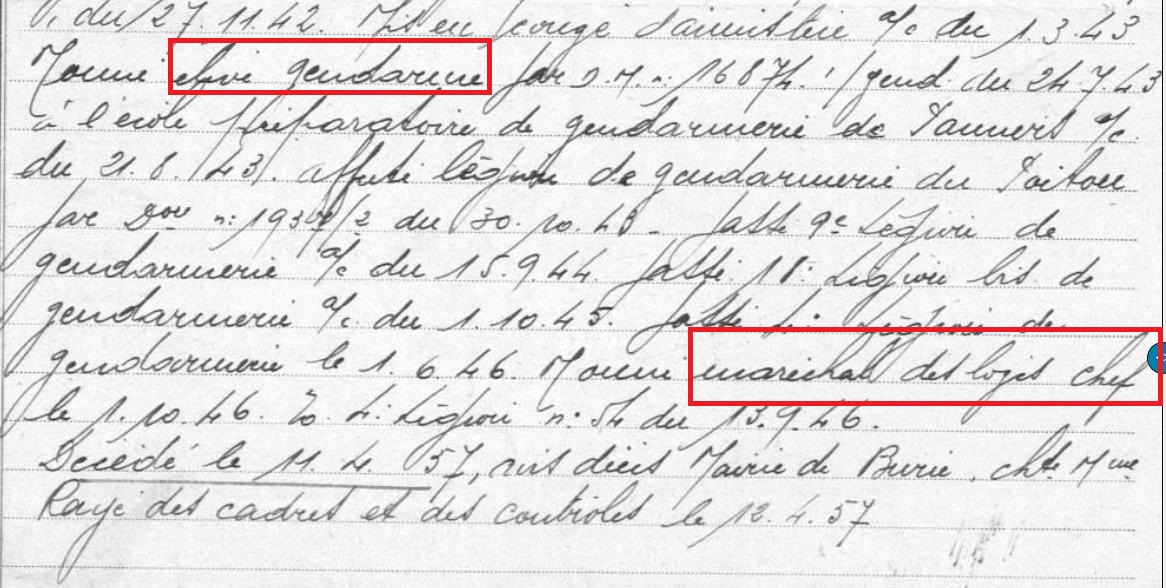 du 27.11.42. Mis en congé d'armistice a/c du 1.3.43
Nommé élève gendarme par D.M. n: 16874 /gend du 24.7.43
à l'école préparatoire de gendarmerie de Pamiers a/c.
du 21.8.43. affecté légion de gendarmerie du Poitou
par n: du 30.10.43 - Passé 9e Légion de
gendarmerie a/c du 15.9.44. Passé 18: Légion bis de
gendarmerie a/c. du 1.10.45. Passé 4: Légion de
gendarmerie le 1.6.46. Nommé maréchal des logis chef
le 1.10.46. 4: Légion n: 54 du 13.9.46.
Décédé le 11.4.57, avis décès Mairie de Burie, chte Mme
Rayé des cadres et des contrôles le 12.4.57